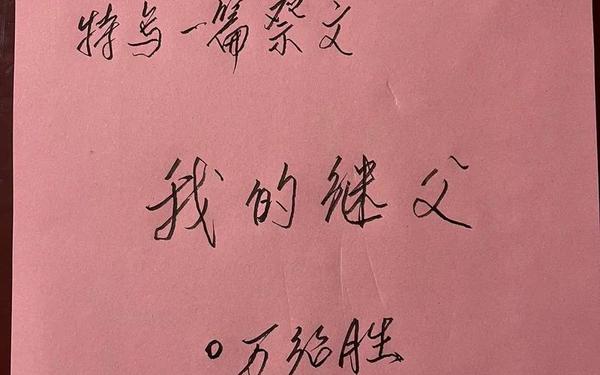 特写一篇祭文
我的继父
○万绍胜